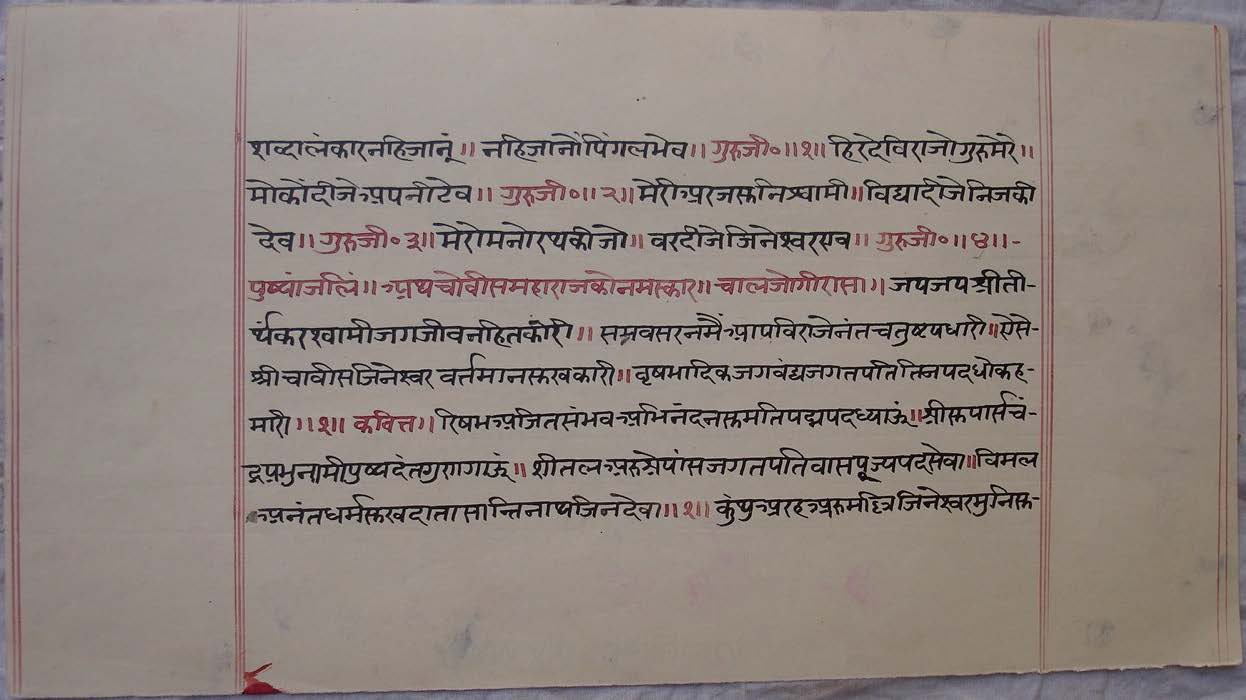 शब्दालंकारनहिजानूं॥ नहिजानौंपिंगलभेव॥ गुरुजी॰॥१॥ हिरदेविराजोगुरुमेरे॥
मोकोंदीजेअपनीटेव॥ गुरुजी॰॥२॥ मेरीअरजसुनिश्वामी॥ विद्यादीजेनिजकी
देव॥ गुरुजी॰३॥ मेरोमनोरथकीजो॥ वरदीजेजिनेश्वरएव॥ गुरुजी॰॥४॥-
पुष्पांजलिं॥ अथचोवीसमहाराजकोनमस्कार॥ चालजोगीरासा॥ जपजपश्रीती-
र्थंकरश्वामीजगजीवनहितकारी॥ सम्रवसरनमैंआपविराजेनंतचतुष्टपधारी॥ ऐसे-
श्रीचावीसजिनेश्वर वर्त्तमानसुखकारी॥ वृषभादिकजगवंद्यजगतपतितिनपदधोकह-
मारी॥१॥ कवित्त॥ रिषभअजितसंभवअभिनंदनसुमतिपद्मपदध्याऊं॥ श्रीसुपार्सचं-
द्रप्रभुनामीपुष्पदंतगुणगाऊं॥ शीतलअरुश्रेपांसजगतपतिवासपूज्यपदसेवा॥ विमल
अनंतधर्मसुखदातासान्तिनाथजिनदेवा॥१॥ कुंथुअरहअरुमल्लिजिनेश्वरमुनिसु-